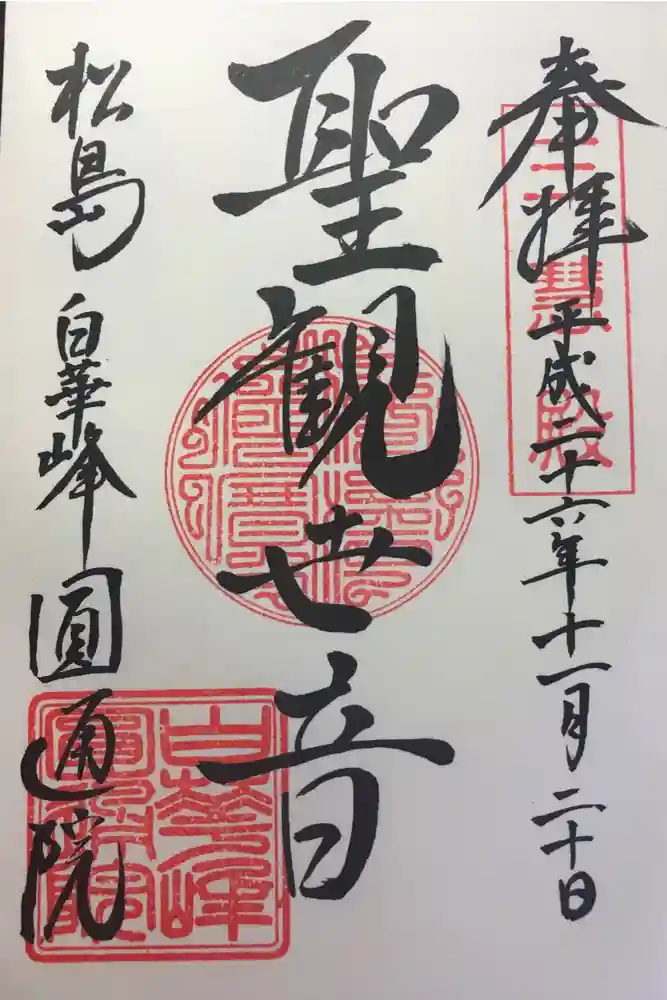 奉拝
平成二十六年十一月二十日
三慧殿
聖観世音
松島 白華峰 圓通院
白華峰
圓通院